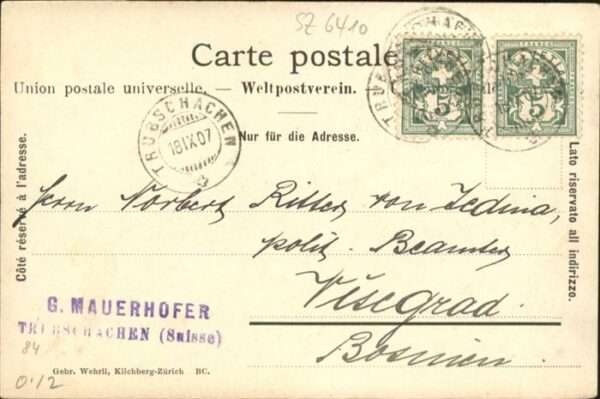 SZ 6410
Carte postale
Union postale universelle. — Weltpostverein.
Nur für die Adresse.
Côté réservé à l'adresse.
Lato riservato all indirizzo.
TRUBSCHACHEN
18 IX 07
5
5
Herrn Norbert Ritter von Jedina,
polit. Beamter
Višegrad.
Bosnien
G. MAUERHOFER
TRUBSCHACHEN (Suisse)
84
0.12
Gebr. Wehrli, Kilchberg-Zürich BC.